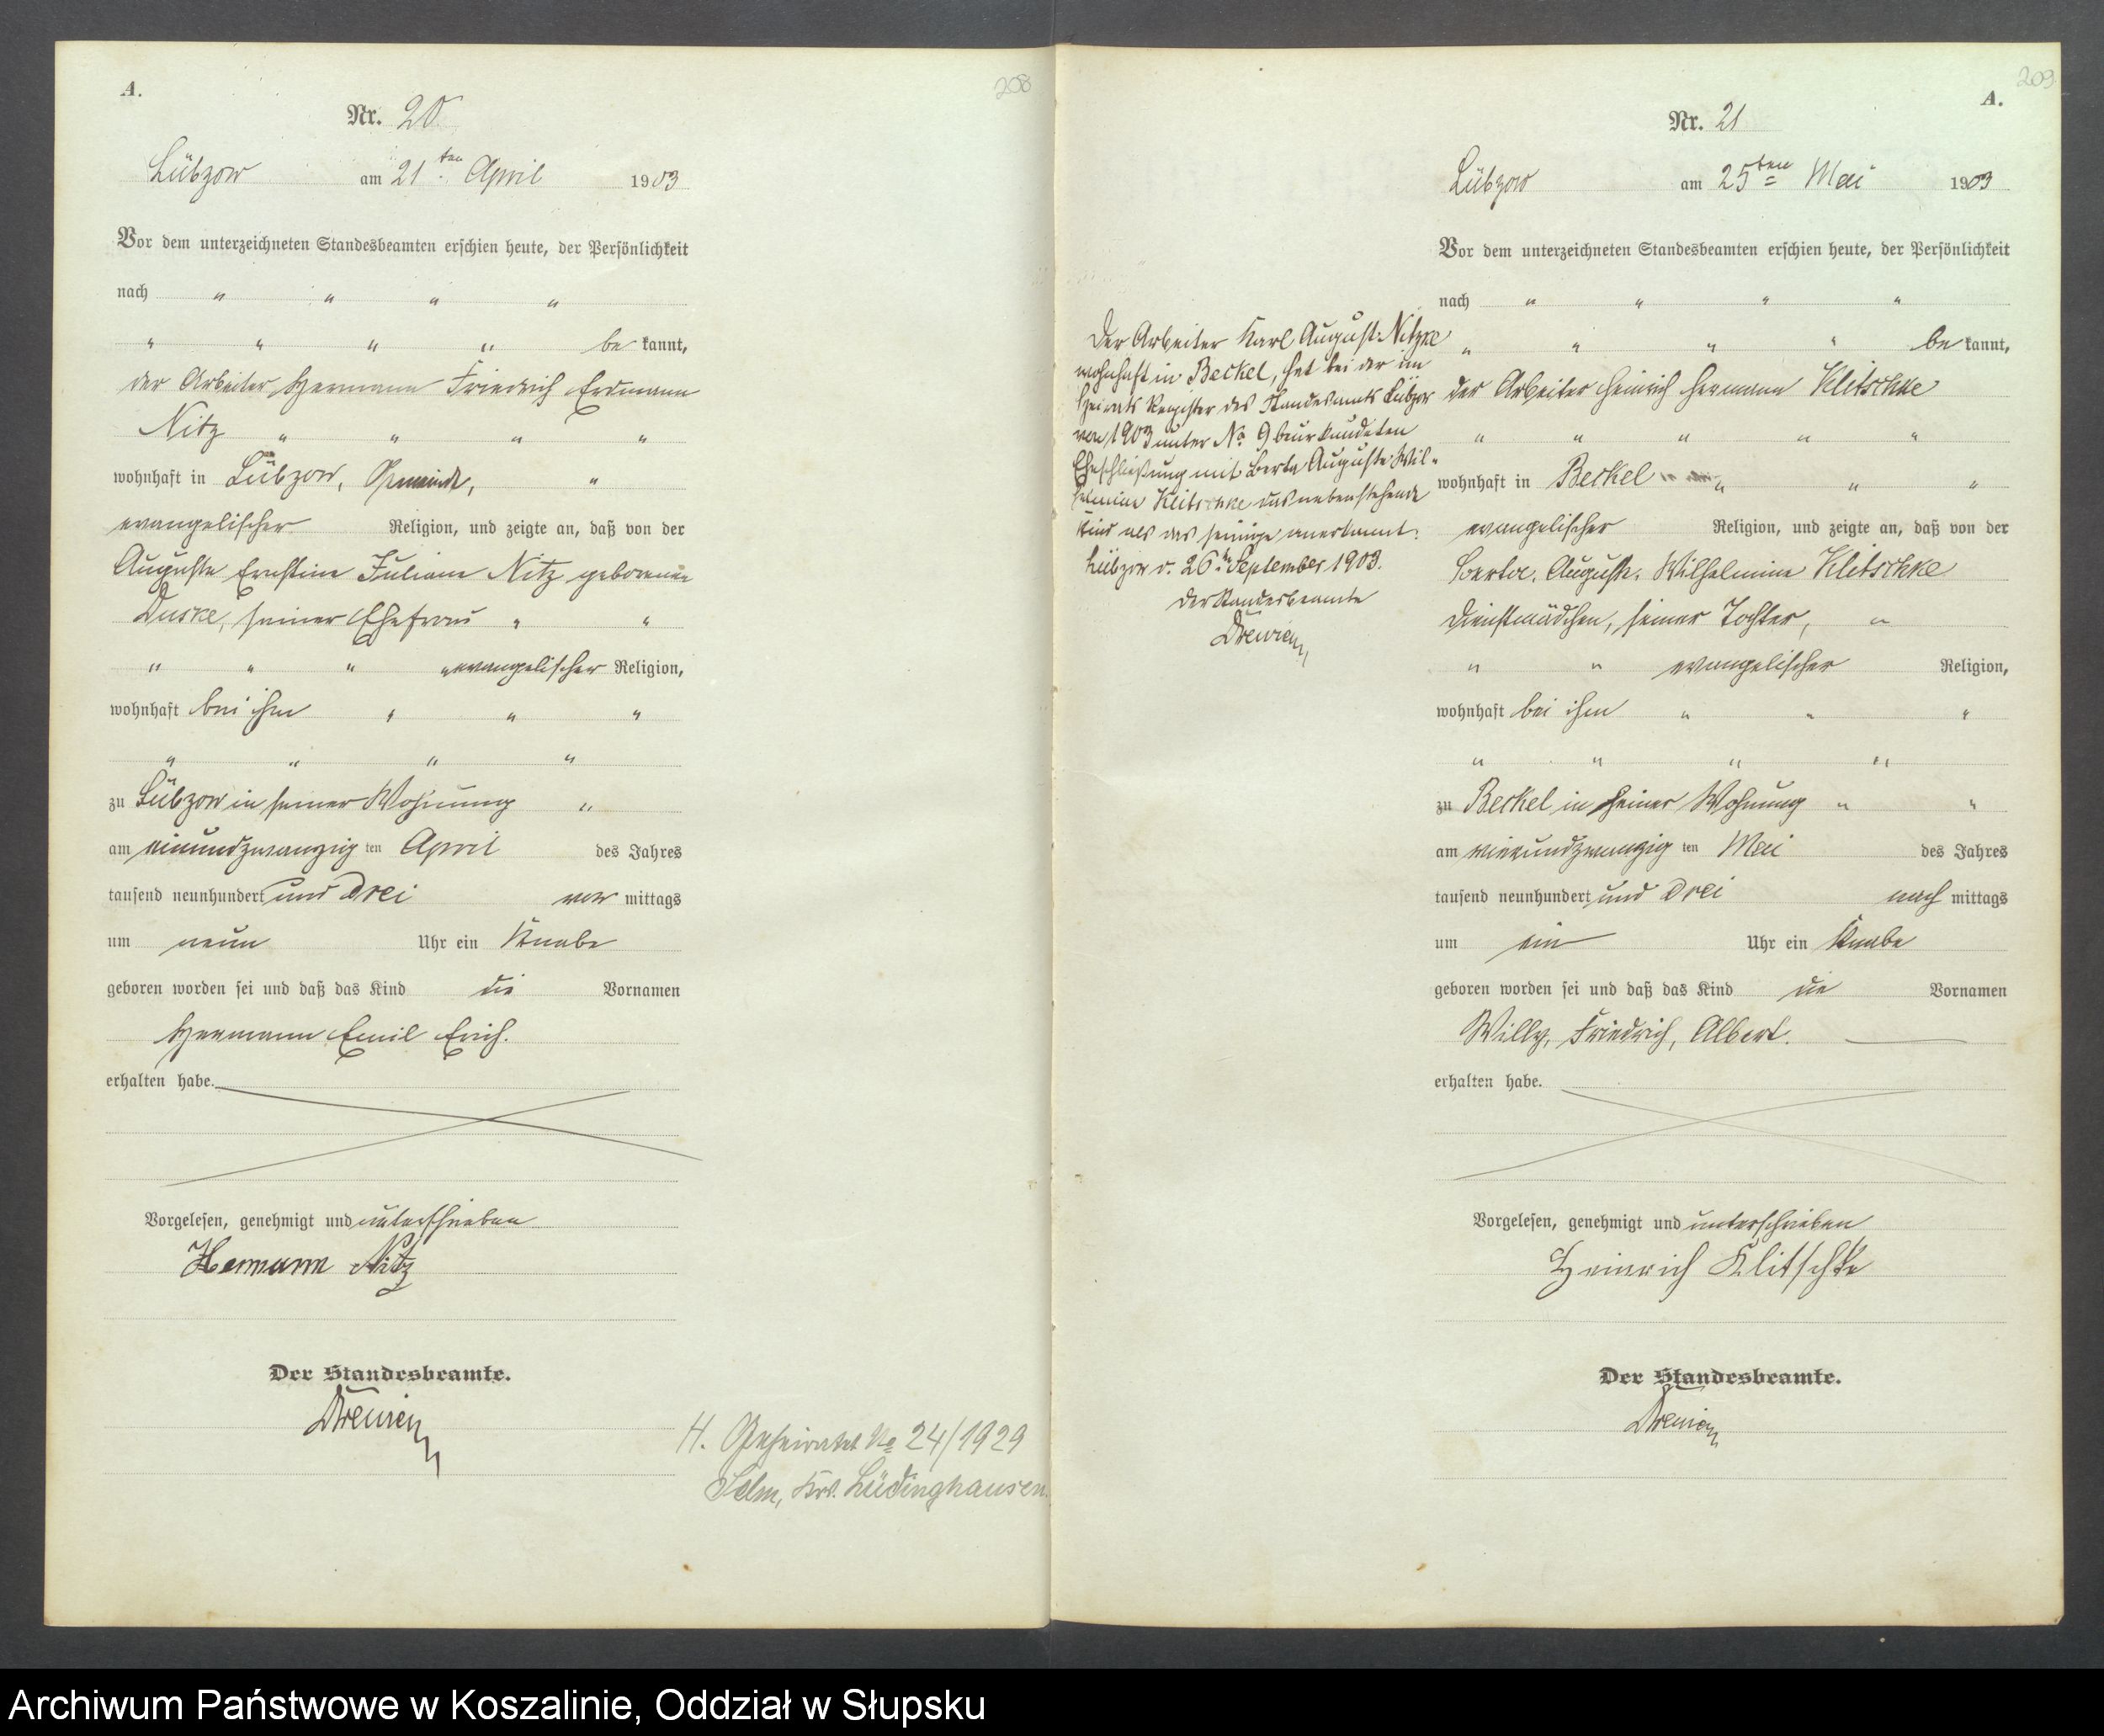 A.
208
Nr. 20
Lübzow am 21ten April 1903
Vor dem unterzeichneten Standesbeamten erschien heute, der Persönlichkeit
nach " " " "
" " " " be kannt,
der Arbeiter Hermann Friedrich Erdmann
Nitz " " " "
wohnhaft in Lübzow, Gemeinde, "
evangelischer Religion, und zeigte an, daß von der
Auguste Ernstine Juliane Nitz geborenen
Duske, seiner Ehefrau " "
" " " " evangelischer Religion,
wohnhaft bei ihm " " "
" " " "
zu Lübzow in seiner Wohnung "
am einundzwanzig ten April des Jahres
tausend neunhundert und drei vor mittags
um neun Uhr ein Knabe
geboren worden sei und daß das Kind die Vornamen
Hermann Emil Erich.
erhalten habe.
Vorgelesen, genehmigt und unterschrieben
Hermann Nitz
Der Standesbeamte.
Drewien
H. Geheiratet No 24/1929
Selm, Krs. Lüdinghausen.
209
A.
Nr. 21
Lübzow am 25ten Mai 1903
Vor dem unterzeichneten Standesbeamten erschien heute, der Persönlichkeit
nach " " " "
" " " " be kannt,
der Arbeiter Heinrich Hermann Klitschke
" " " " "
wohnhaft in Beckel " " "
evangelischer Religion, und zeigte an, daß von der
Berta, Auguste, Wilhelmine Klitschke
Dienstmädchen, seiner Tochter, "
" " evangelischer Religion,
wohnhaft bei ihm " " "
" " " "
zu Beckel in seiner Wohnung " "
am vierundzwanzig ten Mai des Jahres
tausend neunhundert und drei nach mittags
um ein Uhr ein Knabe
geboren worden sei und daß das Kind die Vornamen
Willy, Friedrich, Albert.
erhalten habe.
Vorgelesen, genehmigt und unterschrieben
Heinrich Klitschke
Der Standesbeamte.
Drewien
Der Arbeiter Karl August Nitzke
wohnhaft in Beckel, hat bei der im
Heirats Register des Standesamts Lübzow
von 1903 unter No 9 beurkundeten
Eheschließung mit Berta Auguste Wil-
helmine Klitschke das nebenstehende
Kind als das seinige anerkannt.
Lübzow d. 26ten September 1903.
Der Standesbeamte
Drewien
Archiwum Państwowe w Koszalinie, Oddział w Słupsku